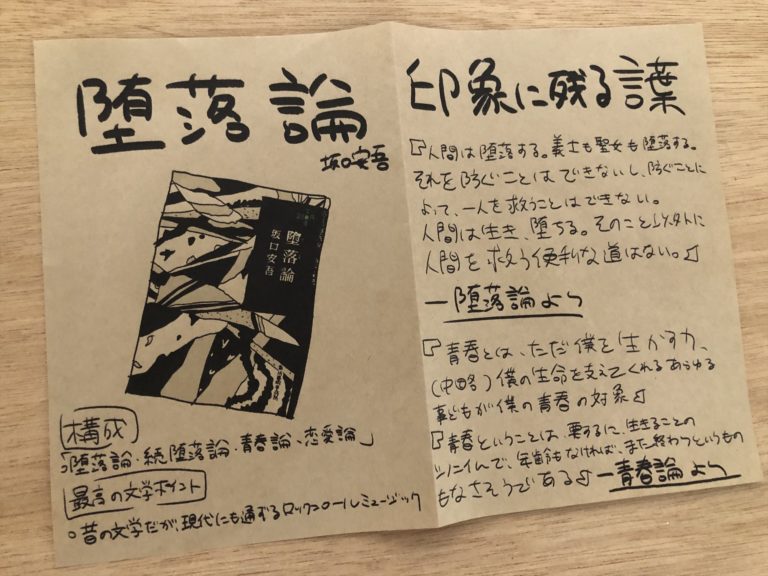 堕落論
坂口安吾
堕落論
坂口安吾
構成
「堕落論・続堕落論・青春論、恋愛論」
最高の文学ポイント
○昔の文学だが、現代にも通ずるロックンロールミュージック
印象に残る言葉
『人間は堕落する。義士も聖女も堕落する。
それを防ぐことはできないし、防ぐことに
よって、人を救うことはできない。
人間は生き、堕ちる。そのこと以外に
人間を救う便利な道はない。』
ー堕落論より
『青春とは、ただ僕を生かす力、
(中略)僕の生命を支えてくれるあらゆる
事どもが僕の青春の対象』
『青春ということは、要するに、生きることの
シノニイムで、年齢もなければ、また終わりというもの
もなさそうである』ー青春論より